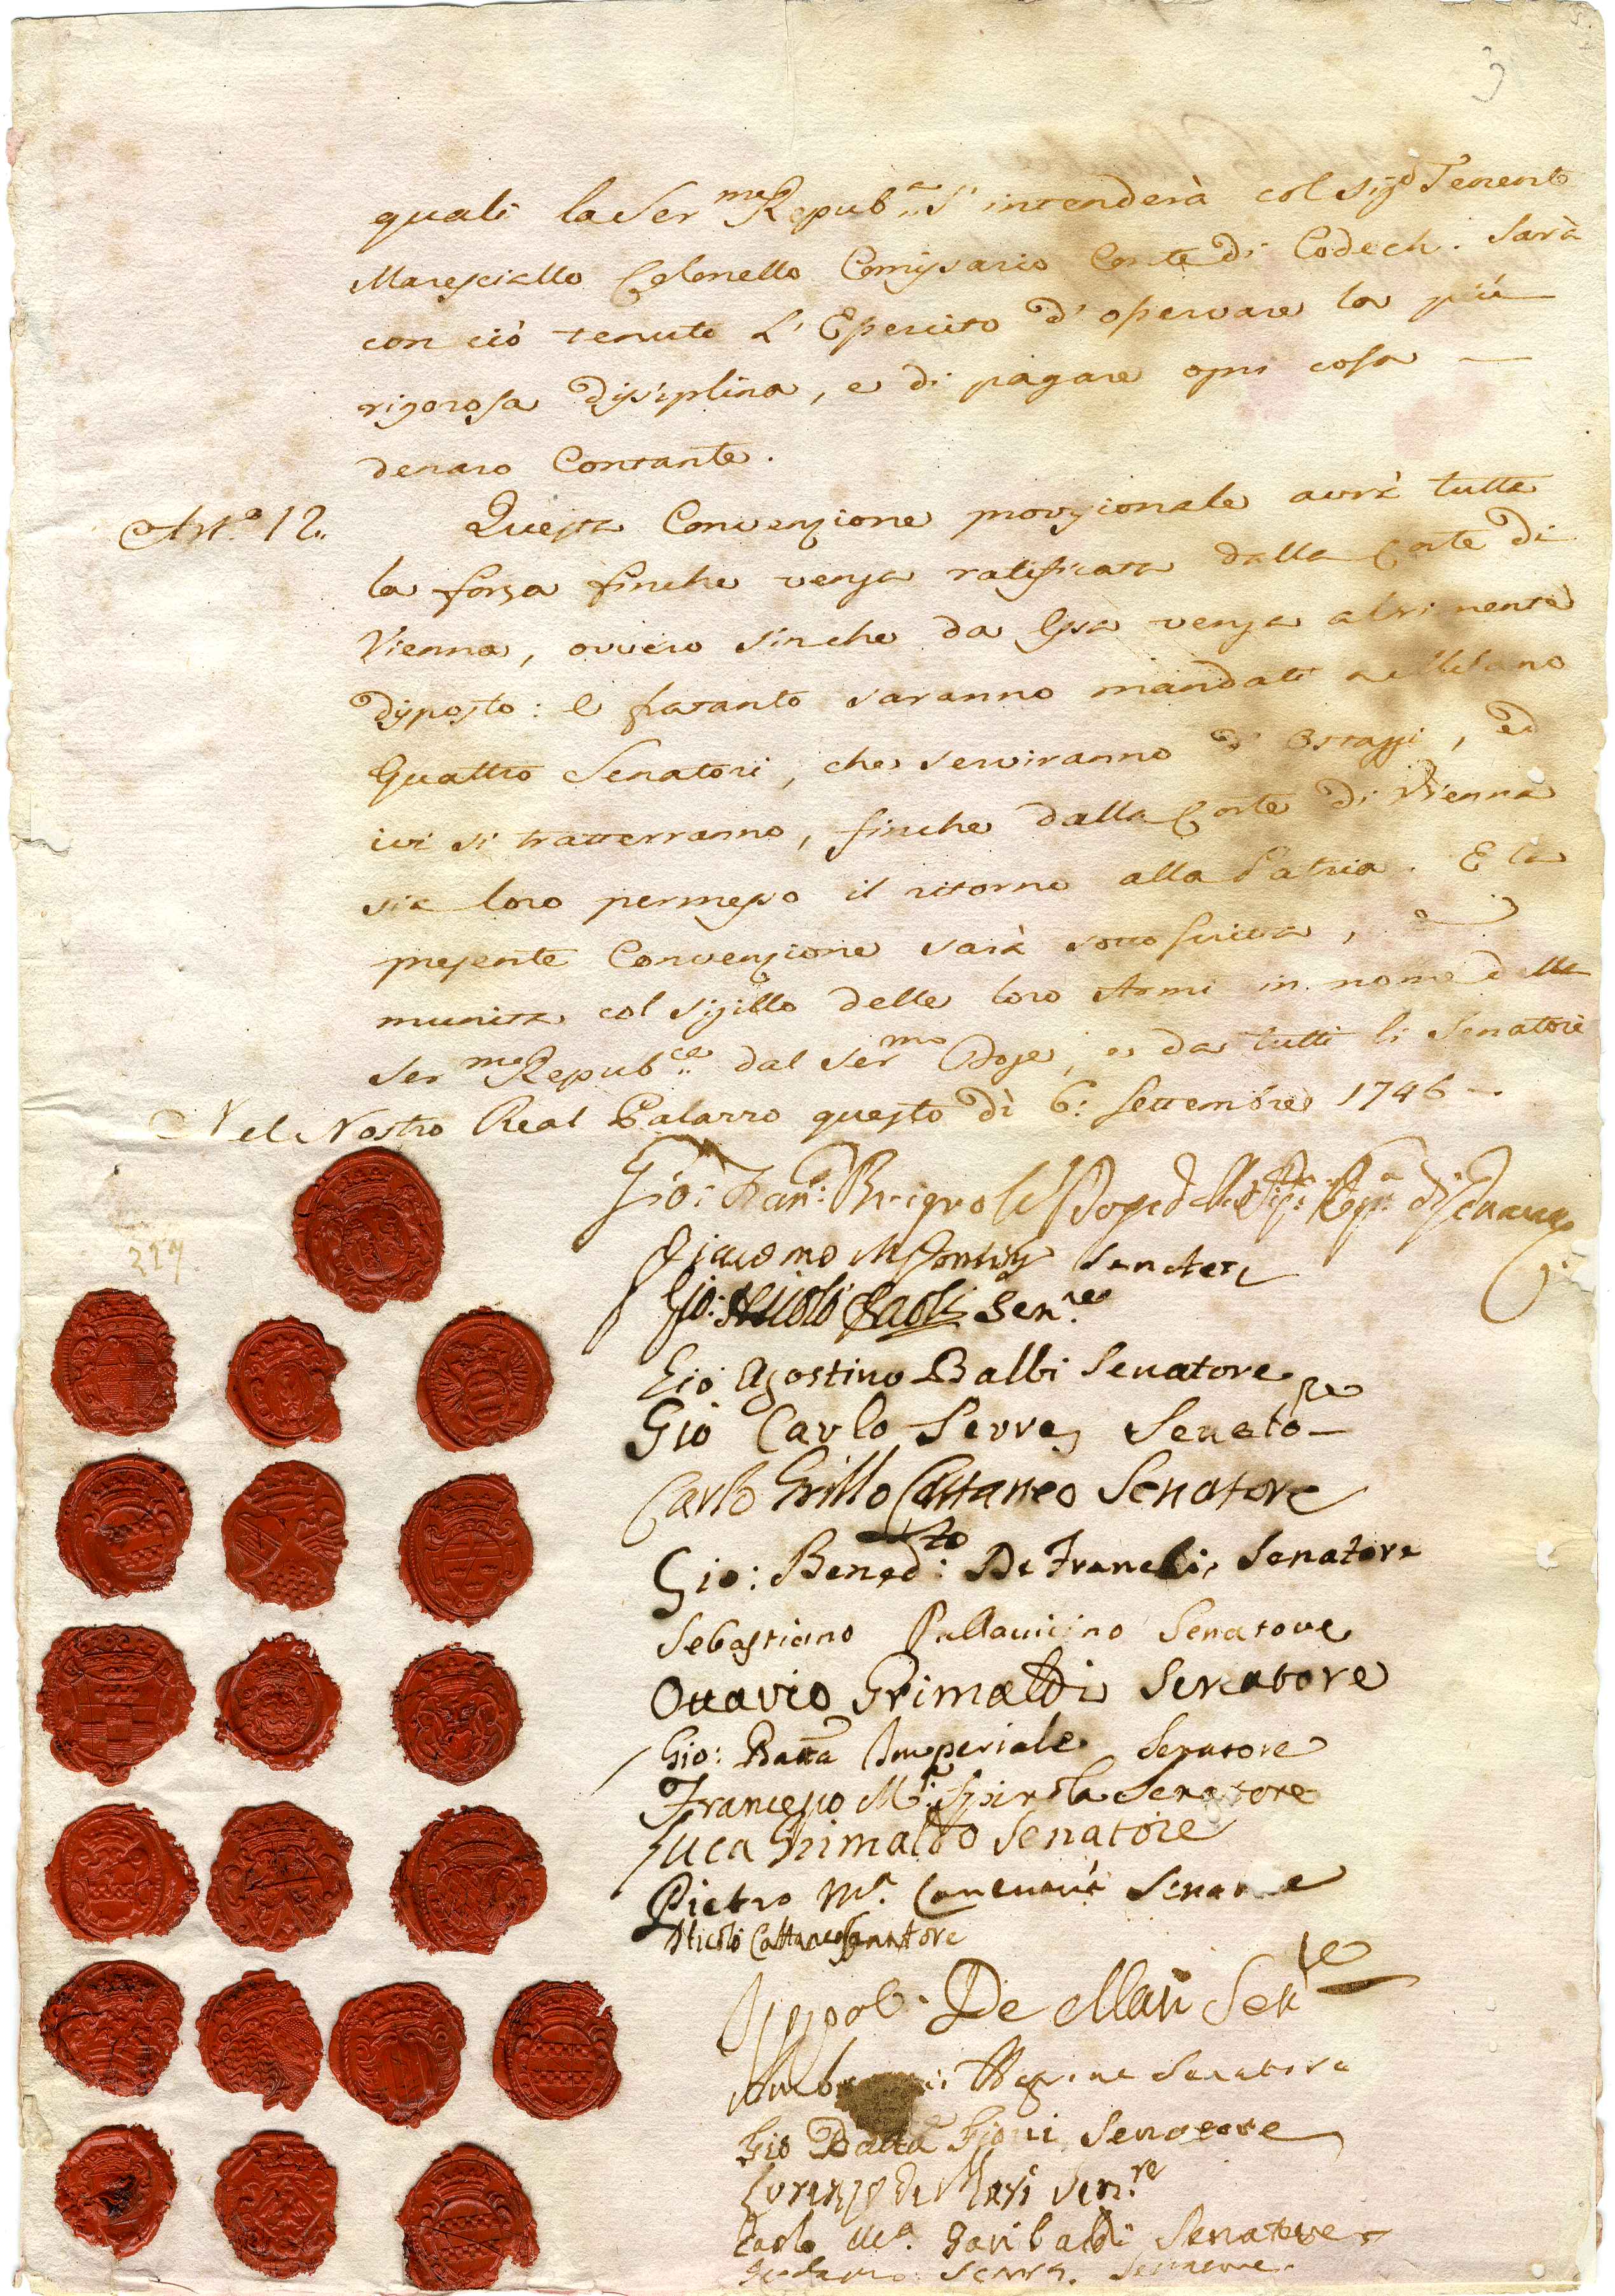 3
quali la Ser.me Repub.ca s'intenderà col Sig.r Tenente
Maresciallo Colonello Comissario Conte di Codech. Sarà
con ciò tenuto L'Esercito d'osservare la più
rigorosa disciplina, e di pagare ogni cosa —
denaro Contante.
Art.o 12. Questa Convenzione provisionale avrà tutta
la forza finche venga ratificata dalla Corte di
Vienna, ovvero sinche da Essa venga altrimente
disposto: E fratanto saranno mandati a Milano
Quattro Senatori, che serviranno d'Ostaggi, ed
ivi si tratterranno, finche dalla Corte di Vienna
sia loro permesso il ritorno alla Patria. E la
presente Convenzione sarà sottoscritta, e
munita col sigillo delle loro Armi in nome della
Ser.me Repub.ca dal Ser.mo Doge, e da tutti li Senatori
Nel Nostro Real Palazzo questo dì 6: Settembre 1746 —
Gio: Fran: Brignole Doge della
Giacomo Senatore
Gio: Nicolò Senre
Gio Agostino Balbi Senatore
Gio Carlo Serra Senatore
Carlo Grillo Cattaneo Senatore
Gio: Benedto: De Franchi Senatore
Sebastiano Pallavicino Senatore
Ottavio Grimaldi Senatore
Gio: Batta Imperiale Senatore
Francesco M.a Spinola Senatore
Luca Grimaldo Senatore
Pietro M.a Canevari Senatore
Nicolò Cattaneo Senatore
De Mari Senre
Senatore
Gio Batta Senatore
Lorenzo de Mari Sen.re
Carlo M.a Garibaldi Senatore
Serra Senatore